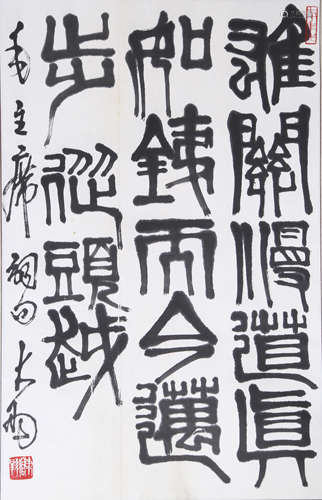 雄關漫道真
如銕而今邁
步從頭越
毛主席詞句 大羽